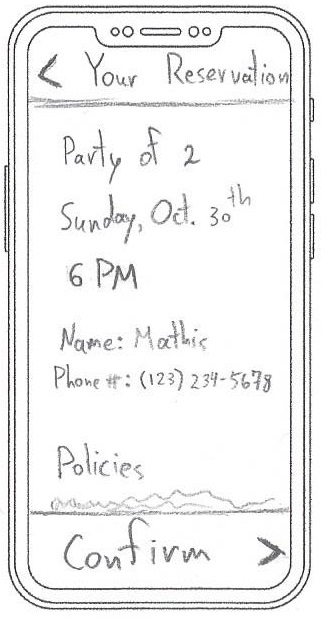 < Your Reservation
Party of 2
Sunday, Oct. 30th
6 PM
Name: Mathis
Phone #: (123) 234-5678
Policies
Confirm >